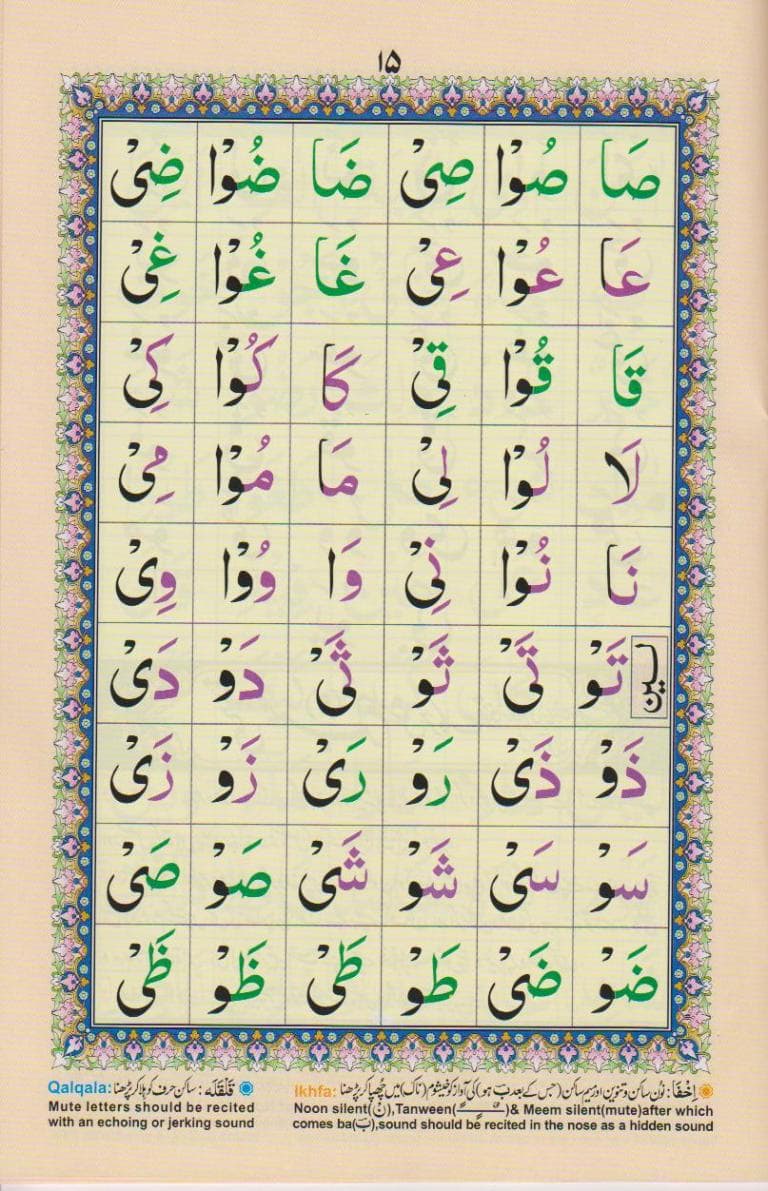 ۱۵
صَا صُوْا صِىْ ضَا ضُوْا ضِىْ
عَا عُوْا عِىْ غَا غُوْا غِىْ
قَا قُوْا قِىْ كَا كُوْا كِىْ
لَا لُوْا لِىْ مَا مُوْا مِىْ
نَا نُوْا نِىْ وَا وُوْا وِىْ
لین تَوْ تَىْ ثَوْ ثَىْ دَوْ دَىْ
ذَوْ ذَىْ رَوْ رَىْ زَوْ زَىْ
سَوْ سَىْ شَوْ شَىْ صَوْ صَىْ
ضَوْ ضَىْ طَوْ طَىْ ظَوْ ظَىْ
اِخْفَا: نون ساکن و تنوین اور میم ساکن (جس کے بعد بَ ہو) کی آواز کو خیشوم (ناک) میں چھپا کر پڑھنا Ikhfa:
Noon silent(نْ),Tanween(ـًـــٍـــٌـ)& Meem silent(mute)after which
comes ba(بَ),sound should be recited in the nose as a hidden sound
قَلْقَلَه: ساکن حرف کو ہلا کر پڑھنا Qalqala:
Mute letters should be recited
with an echoing or jerking sound